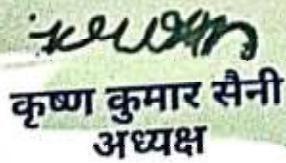 कृष्ण कुमार सैनी
अध्यक्ष